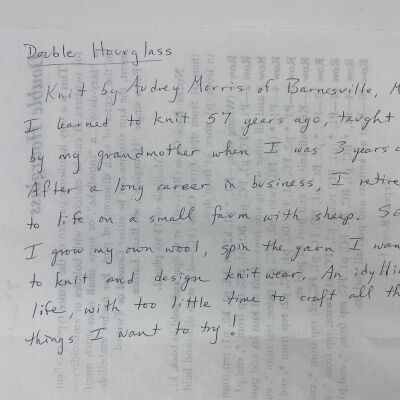 Double Hourglass
Knit by Audrey Morris of Barnesville, M
I learned to knit 57 years ago, taught
by my grandmother when I was 3 years o
After a long career in business, I retire
to life on a small farm with sheep. So
I grow my own wool, spin the yarn I wan
to knit and design knit wear. An idylli
life, with too little time to craft all th
things I want to try!